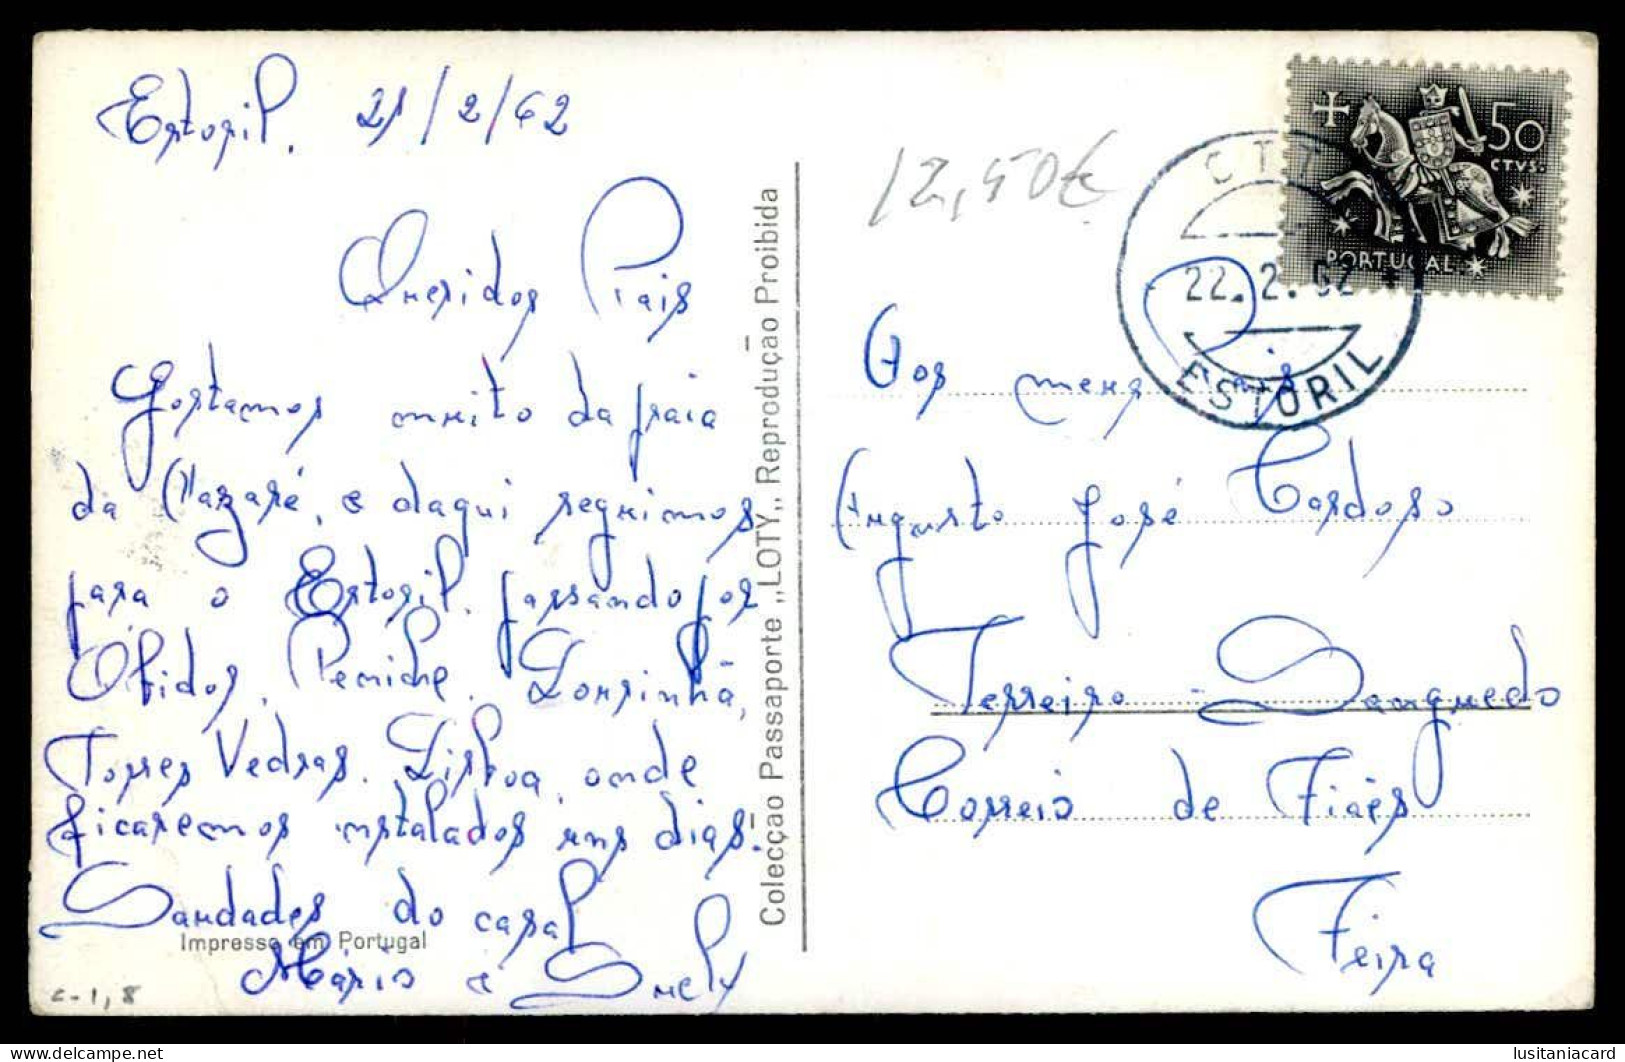 Estoril, 21/2/62
Queridos Pais
Gostamos muito da praia
da Nazaré, e daqui seguimos
para o Estoril, passando por
Obidos, Peniche, Lourinhã,
Torres Vedras, Lisboa, onde
ficaremos instalados uns dias.
Saudades do casal
Mário e Suely
Impresso em Portugal
c-1,8
Colecção Passaporte „LOTY„ Reprodução Proibida
12,50€
CTT
22.2.62
ESTORIL
50
CTVS.
PORTUGAL
Aos meus Pais
Augusto José Cardoso
Terreiro - Sanguedo
Correio de Fiães
Feira
lusitaniacard